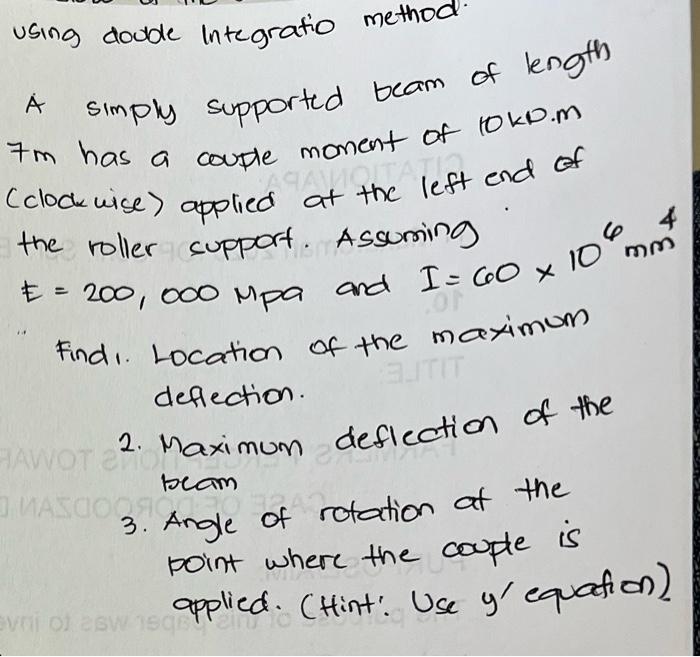 using double Integratio method.
A simply supported beam of length
7m has a couple moment of 10kN.m
(clockwise) applied at the left end of
the roller support. Assuming
E = 200,000 Mpa and I = 60 × 10⁶ mm⁴
Find 1. Location of the maximum
deflection.
2. Maximum deflection of the
beam
3. Angle of rotation at the
point where the couple is
applied. (Hint: Use y' equation)